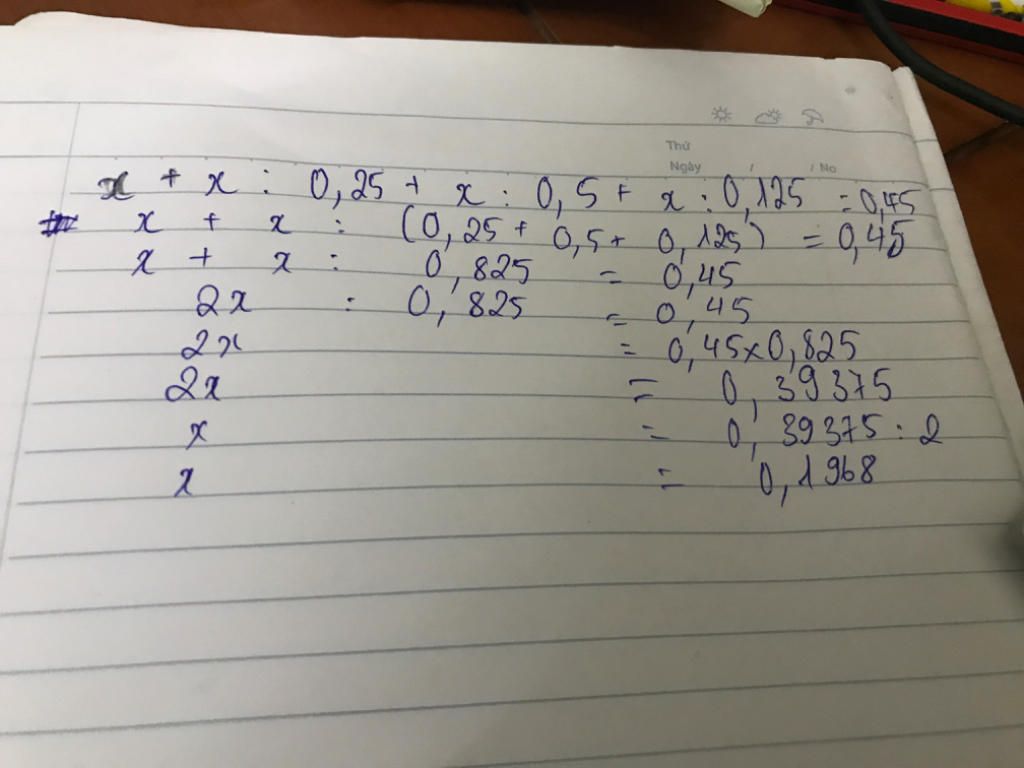 Thứ
Ngày / / No
x + x : 0,25 + x : 0,5 + x : 0,125 = 0,45
x + x : (0,25 + 0,5 + 0,125) = 0,45
x + x : 0,825 = 0,45
2x : 0,825 = 0,45
2x = 0,45x0,825
2x = 0,39375
x = 0,39375 : 2
x = 0,1968